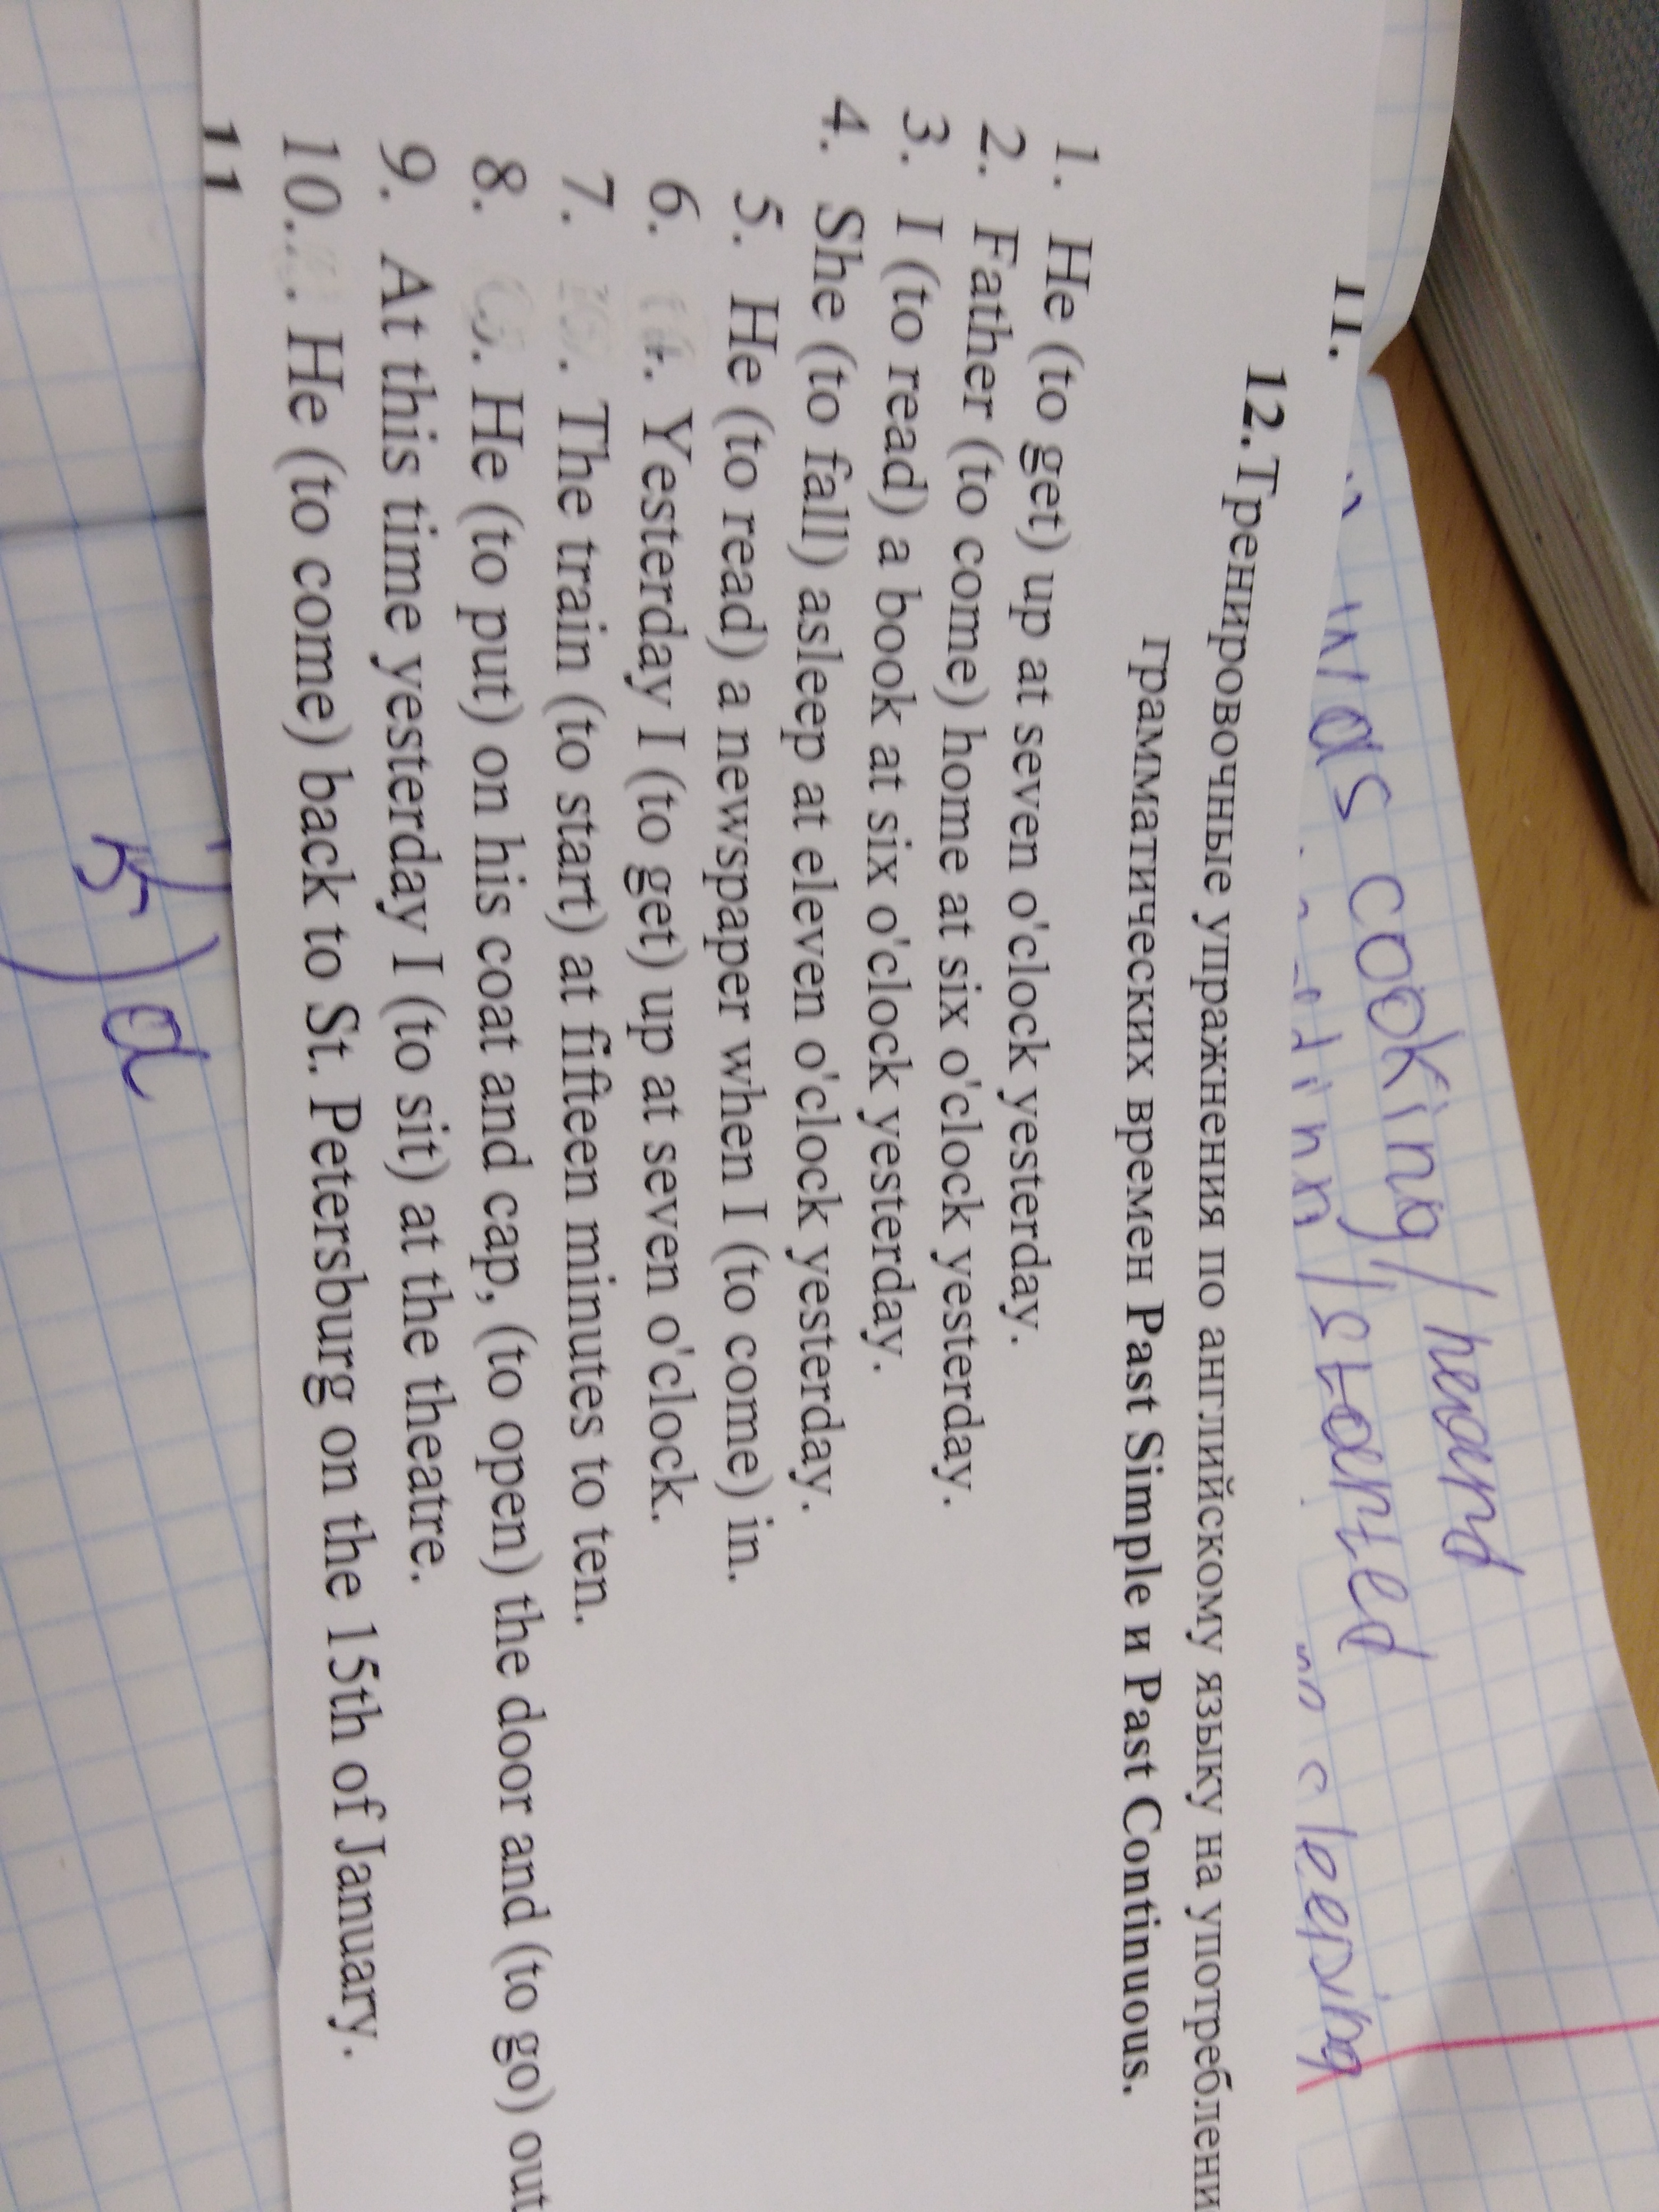 was cooking/heard
started
sleeping
11.
12.Тренировочные упражнения по английскому языку на употреблени
грамматических времен Past Simple и Past Continuous.
1. He (to get) up at seven o'clock yesterday.
2. Father (to come) home at six o'clock yesterday.
3. I (to read) a book at six o'clock yesterday.
4. She (to fall) asleep at eleven o'clock yesterday.
5. He (to read) a newspaper when I (to come) in.
6. Yesterday I (to get) up at seven o'clock.
7. The train (to start) at fifteen minutes to ten.
8. He (to put) on his coat and cap, (to open) the door and (to go) out
9. At this time yesterday I (to sit) at the theatre.
10. He (to come) back to St. Petersburg on the 15th of January.
11
5) a